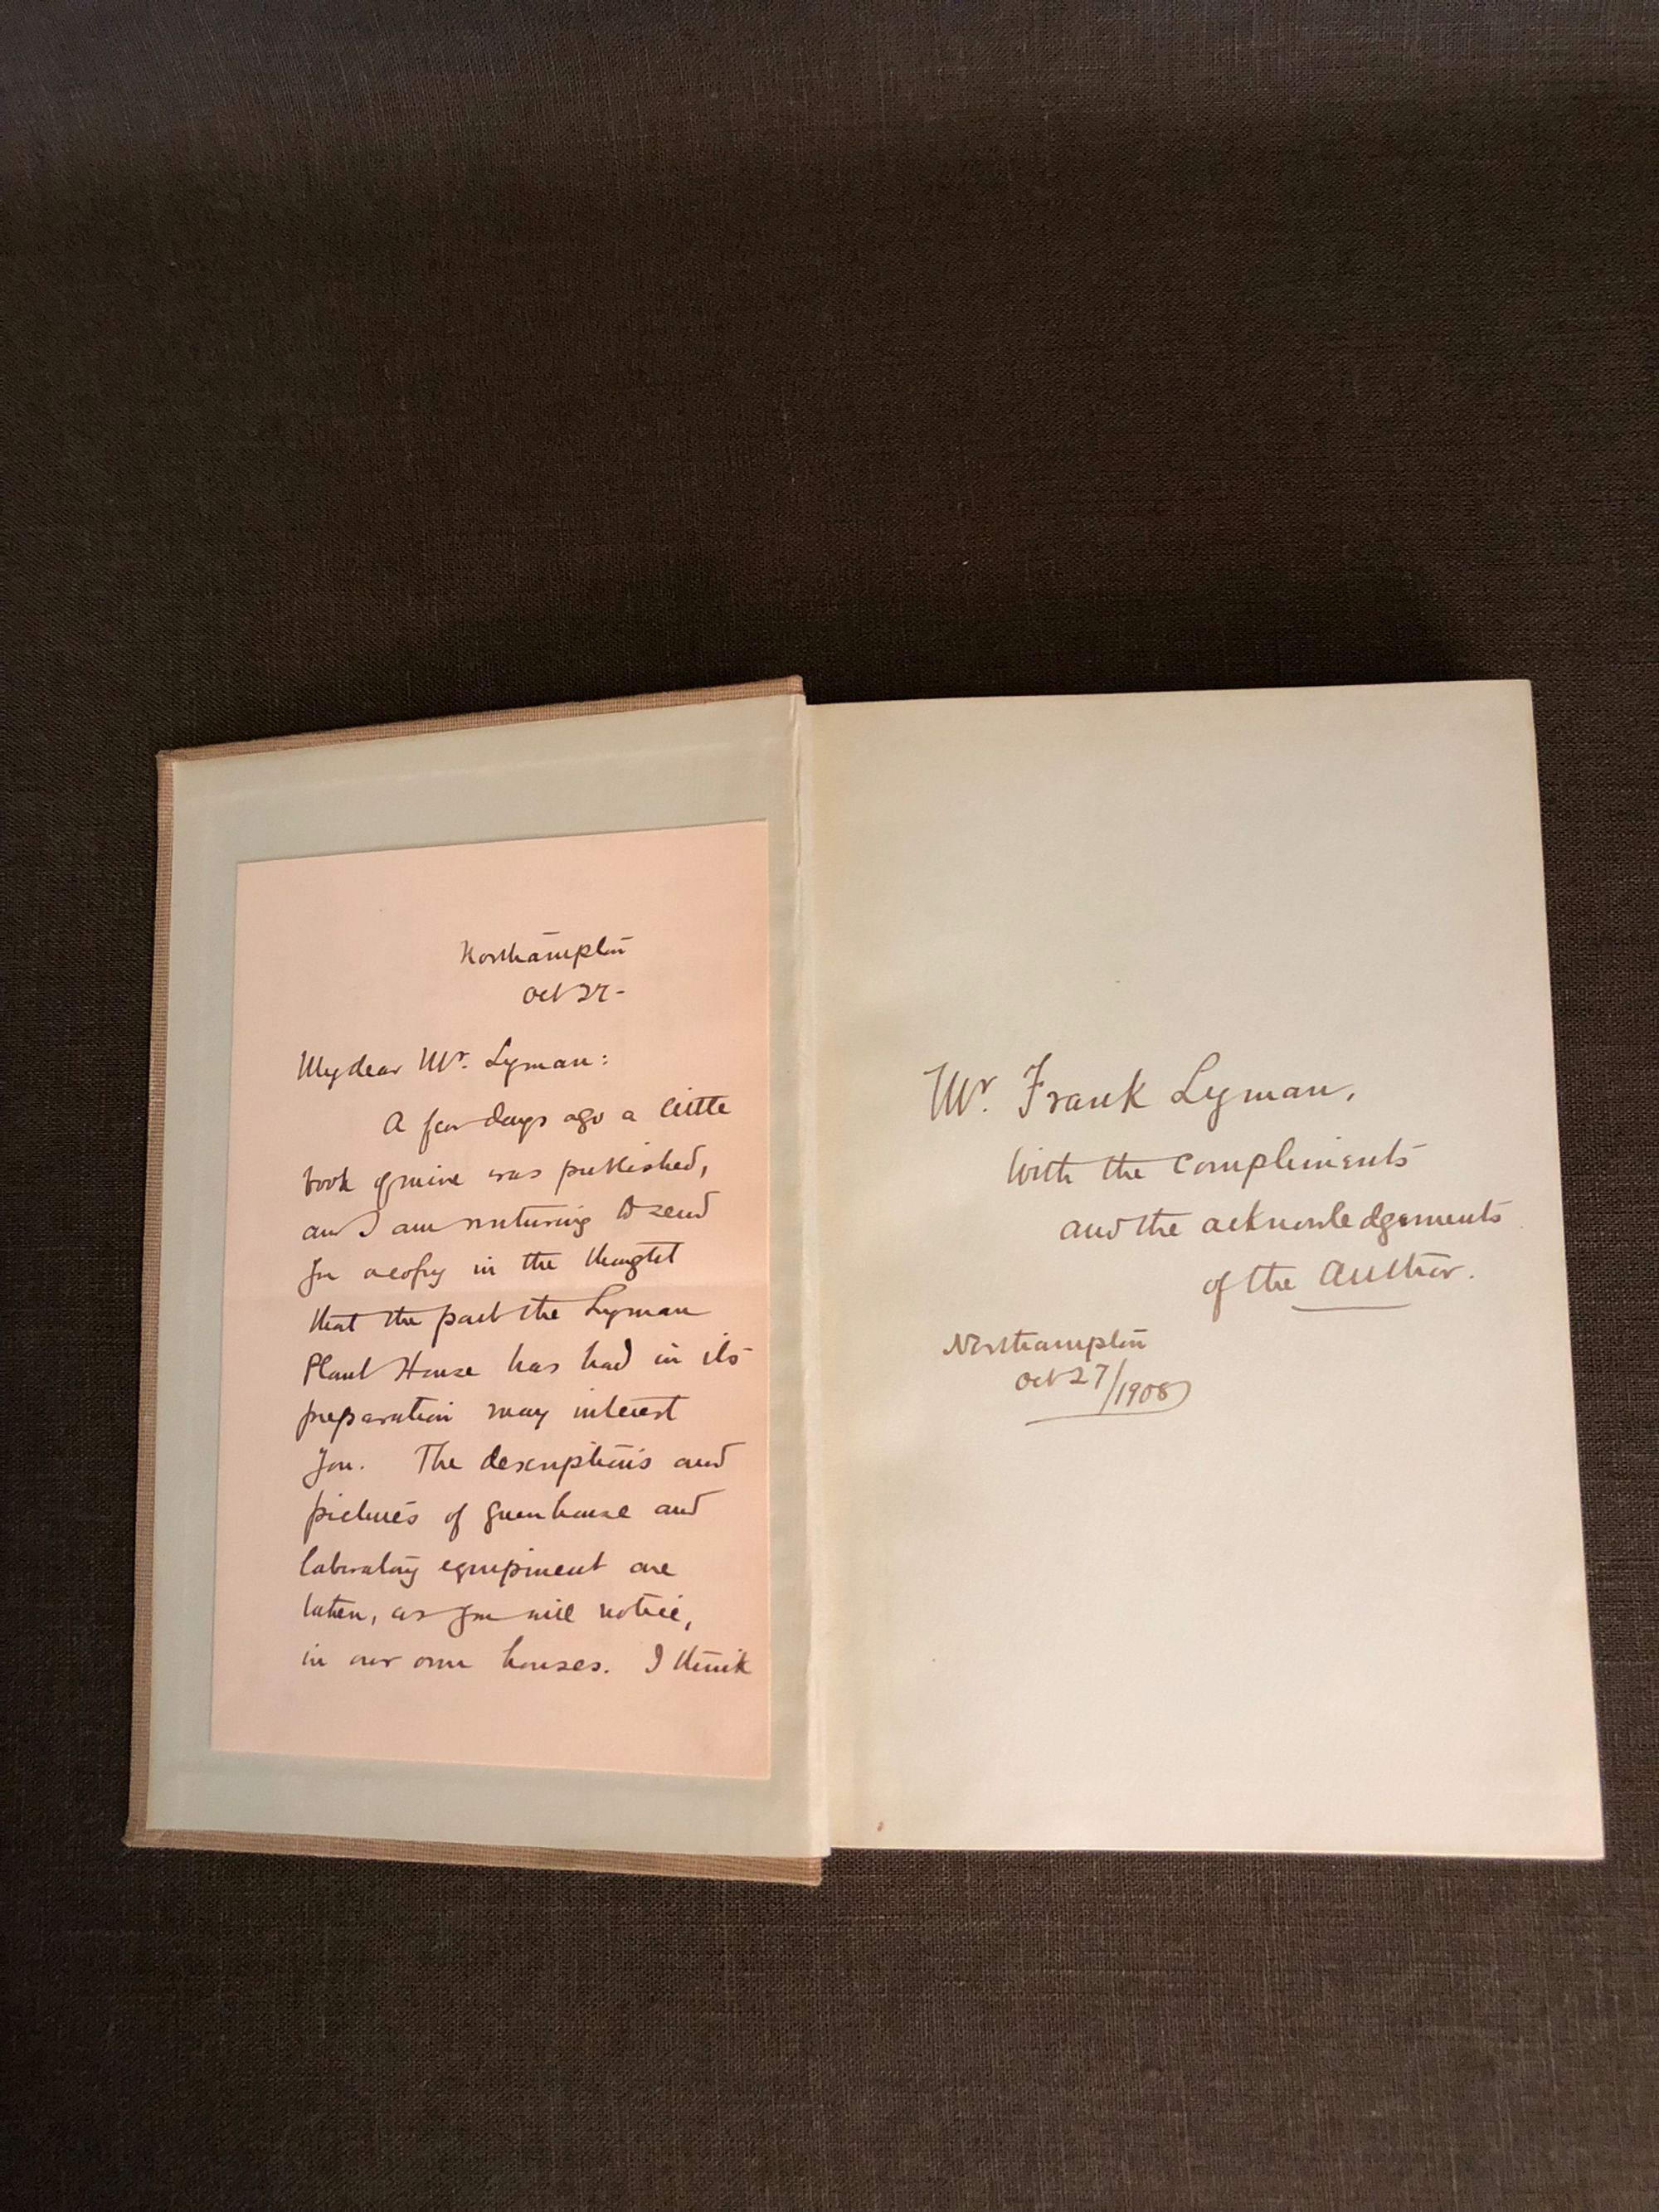 Northampton
Oct 27-
My dear Mr. Lyman:
A few days ago a little
book of mine was published,
and I am venturing to send
you a copy in the thought
that the part the Lyman
Plant House has had in its
preparation may interest
you. The descriptions and
pictures of greenhouse and
laboratory equipment are
taken, as you will notice,
in our own houses. I think
Mr. Frank Lyman,
With the compliments
and the acknowledgements
of the Author.
Northampton
Oct 27/1908